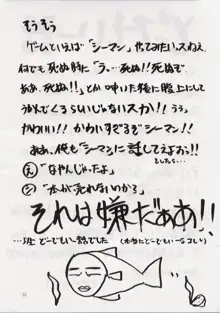 そうそう
ゲームといえば「シーマン」やってみたいっスねえ
何でも死ぬ時に「う。…死ぬ!!死ぬぞ
ああ、死ぬ!!」とか呟いた後に腹上にして
うかんでくるらしいじゃないスか!!うぅっ
かわいい!!かわいすぎるぞシーマン!!
ああ、俺もシーマンに話してえよお!!
としたら…
「なやんじゃったよ」
「本が売れないわかる」
それは嫌だああ!!
…班 どーでもいい話でした(本当にどーでもいーなコレ)